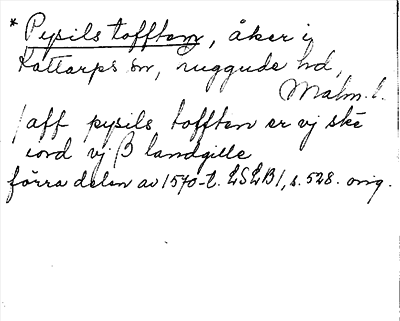 * Pysils tofften, åker i
Kattarps sn, ruggude hd,
Malm. l.
/aff pysils tofften er vj skē
iord vj β landgille
förra delen av 1570-t. LSLB1, s. 528. orig.